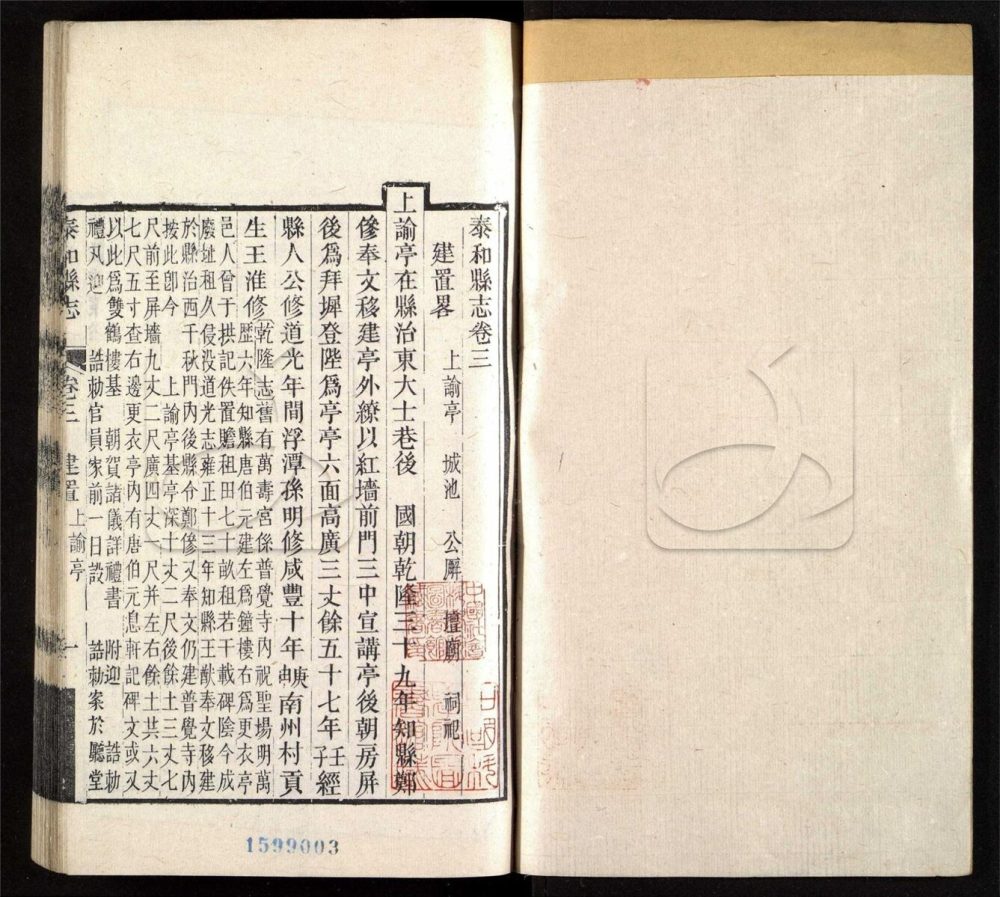 泰和縣志卷三
建置畧 上諭亭 城池 公廨 壇廟 祠祀
上諭亭在縣治東大士巷後 國朝乾隆三十九年知縣鄭
俢奉文移建亭外繚以紅墻前門三中宣講亭後朝房屏
後爲拜墀登陛爲亭亭六面高廣三丈餘五十七年壬子經
縣人公修道光年間浮潭孫明修咸豐十年庚申南州村貢
生王淮修乾隆志舊有萬壽宮係普覺寺內祝聖場明萬
歷六年知縣唐伯元建左爲鐘樓右爲更衣亭
邑人曾于拱記佚置贍租田七十畝租若干載碑陰今成
廢址租久侵没道光志雍正十三年知縣王猷奉文移建
於縣治西千秋門內後縣令鄭俢又奉文仍建普覺寺內
按此卽今 上諭亭基亭深十丈二尺後餘土三丈七
尺前至屏墻九丈二尺廣四丈一尺并左右餘土共六丈
七尺五寸查右邊更衣亭內有唐伯元息軒記碑文或又
以此爲雙鶴樓基 朝賀諸儀詳禮書 附迎 誥勅
禮凡迎 誥勅官員家前一日設 誥勅案於廳堂
泰和縣志 卷三 建置 上諭亭 一
1599003